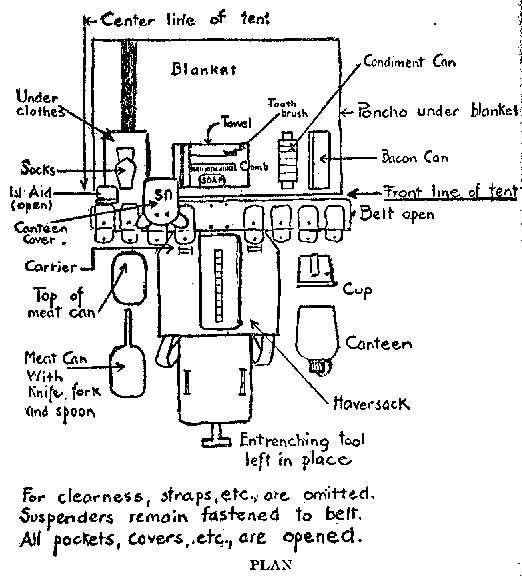 Center line of tent
Blanket
Condiment Can
Under
clothes
Towel
Tooth
brush
Poncho under blanket
Socks
Comb
SOAP
Bacon Can
1st Aid
(open)
US
Front line of tent
Canteen
Cover.
Belt open
Carrier
Top of
meat can
Cup
Meat Can
With
Knife, fork
and spoon
Canteen
Haversack
Entrenching tool
left in place
For clearness, straps, etc., are omitted.
Suspenders remain fastened to belt.
All pockets, covers, etc., are opened.
PLAN